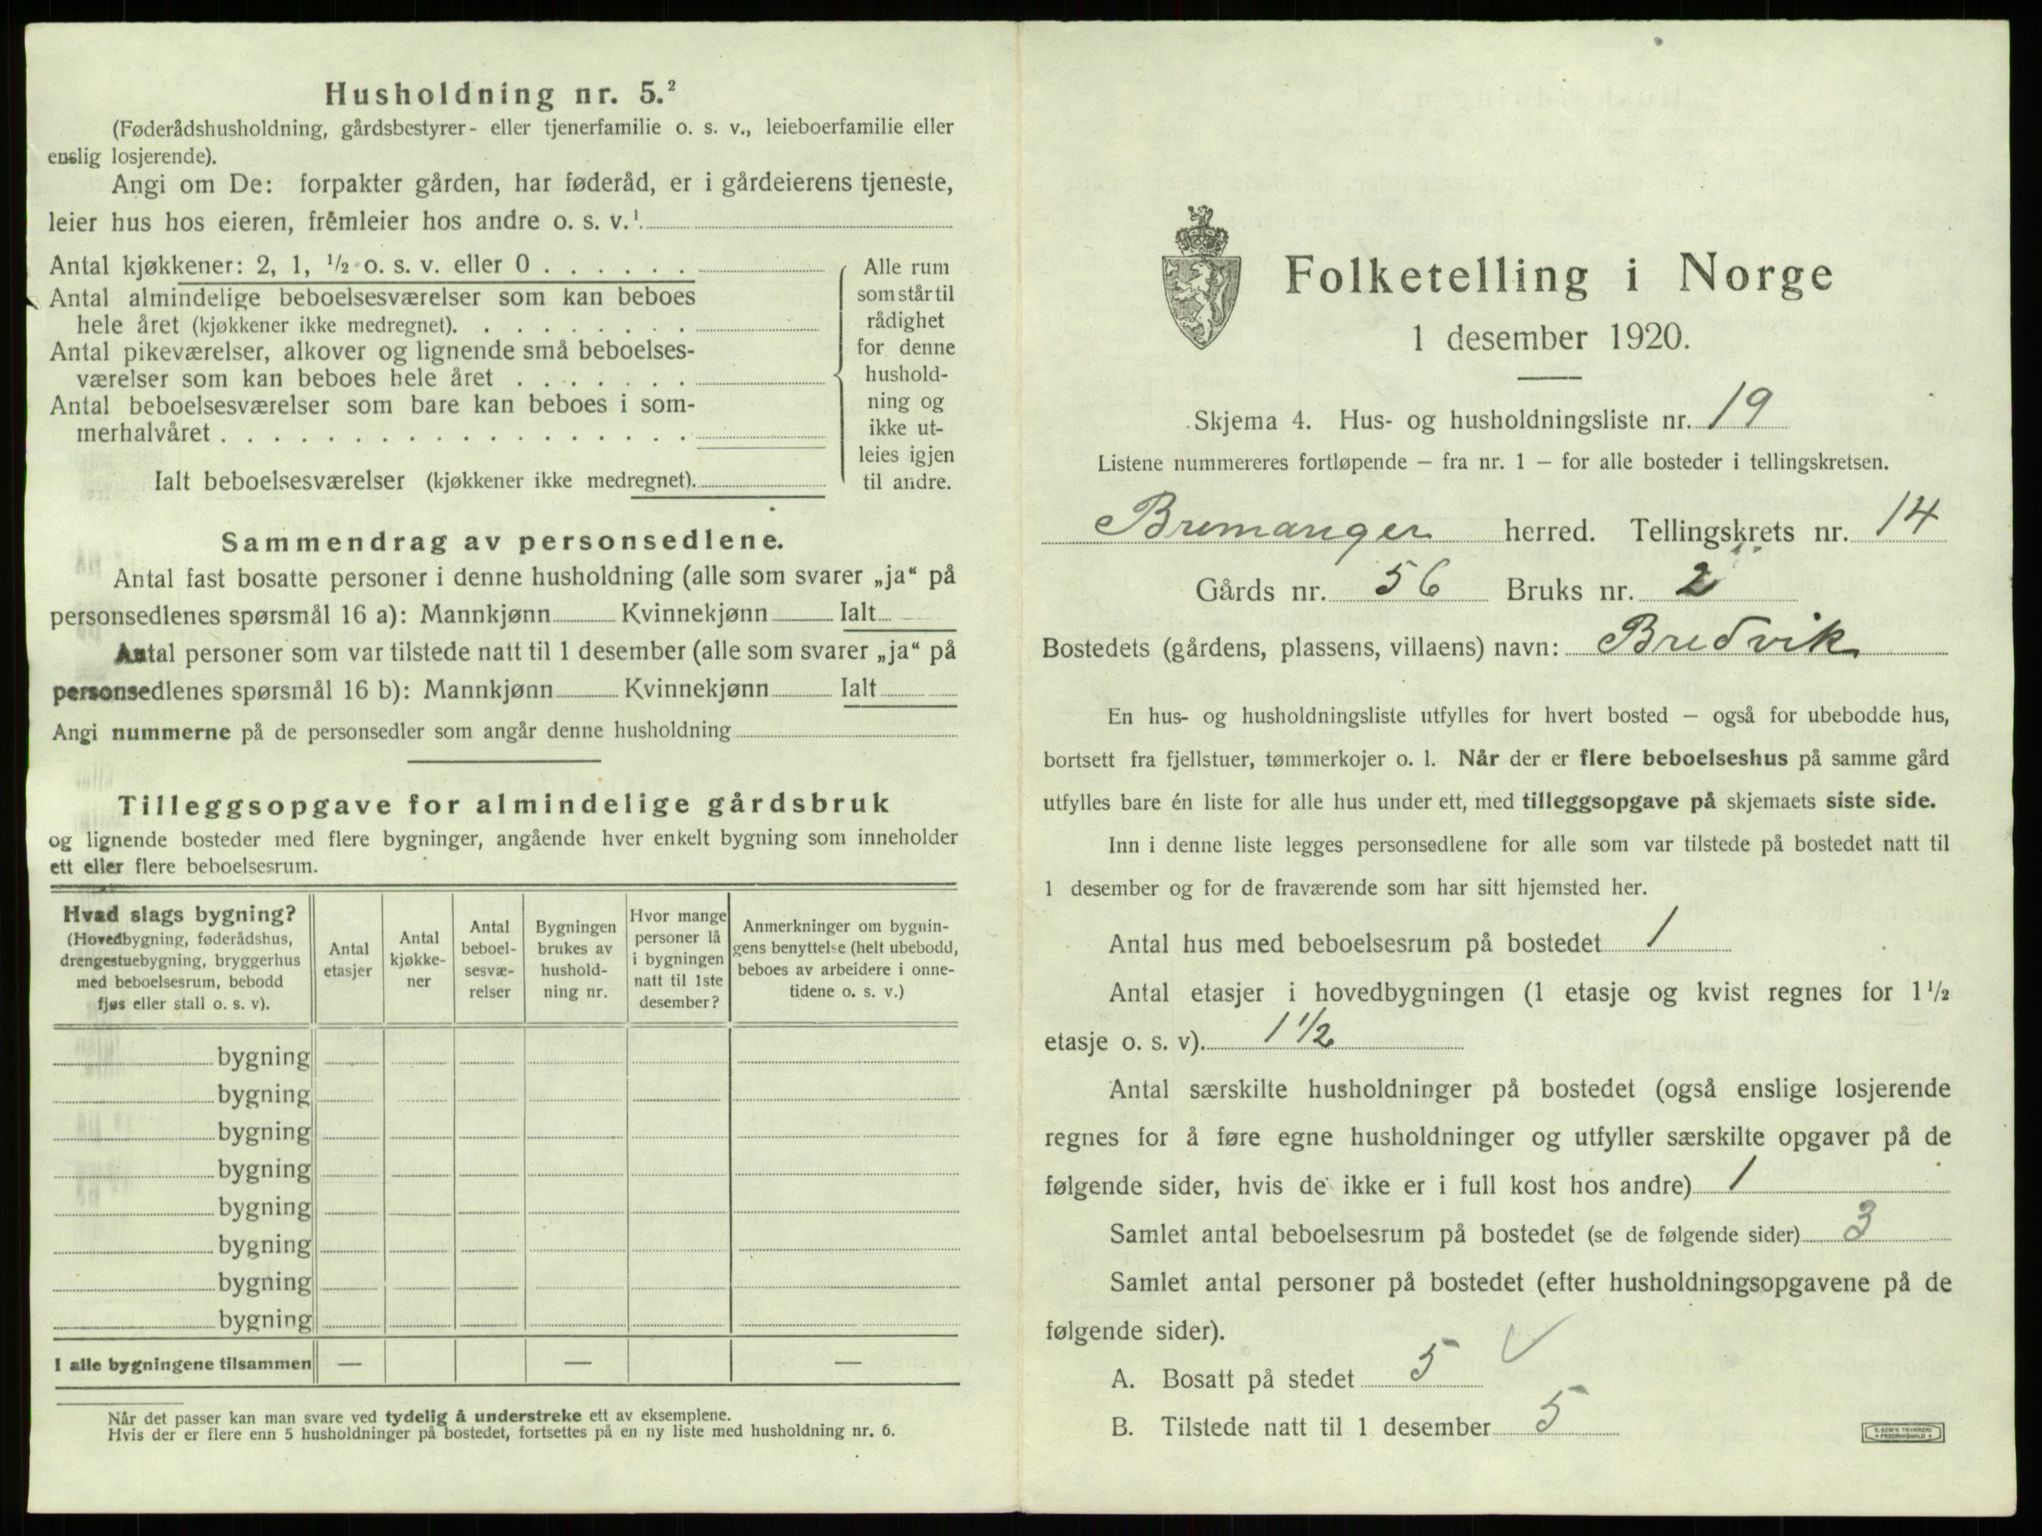 Husholdning nr. 5.²
(Føderådshusholdning, gårdsbestyrer- eller tjenerfamilie o. s. v., leieboerfamilie eller
enslig losjerende).
Angi om De: forpakter gården, har føderåd, er i gårdeierens tjeneste,
leier hus hos eieren, fremleier hos andre o. s. v.¹
Antal kjøkkener: 2, 1, ½ o. s. v. eller 0 . . . . . .
Antal almindelige beboelsesværelser som kan beboes
hele året (kjøkkener ikke medregnet). . . . . . . . .
Antal pikeværelser, alkover og lignende små beboelses-
værelser som kan beboes hele året . . . . . . .
Antal beboelsesværelser som bare kan beboes i som-
merhalvåret . . . . . . . . . . . . . . . . . .
Ialt beboelsesværelser (kjøkkener ikke medregnet).
Alle rum
som står til
rådighet
for denne
hushold-
ning og
ikke ut-
leies igjen
til andre.
Sammendrag av personsedlene.
Antal fast bosatte personer i denne husholdning (alle som svarer „ja“ på
personsedlenes spørsmål 16 a): Mannkjønn Kvinnekjønn Ialt
Antal personer som var tilstede natt til 1 desember (alle som svarer „ja“ på
personsedlenes spørsmål 16 b): Mannkjønn Kvinnekjønn Ialt
Angi nummerne på de personsedler som angår denne husholdning
Tilleggsopgave for almindelige gårdsbruk
og lignende bosteder med flere bygninger, angående hver enkelt bygning som inneholder
ett eller flere beboelsesrum.
Hvad slags bygning?
(Hovedbygning, føderådshus,
drengestuebygning, bryggerhus
med beboelsesrum, bebodd
fjøs eller stall o. s. v).
Antal
etasjer
Antal
kjøkke-
ner
Antal
beboel-
sesvæ-
relser
Bygningen
brukes av
hushold-
ning nr.
Hvor mange
personer lå
i bygningen
natt til 1ste
desember?
Anmerkninger om bygnin-
gens benyttelse (helt ubebodd,
beboes av arbeidere i onne-
tidene o. s. v.)
bygning
bygning
bygning
bygning
bygning
bygning
bygning
bygning
I alle bygningene tilsammen — — —
Når det passer kan man svare ved tydelig å understreke ett av eksemplene.
Hvis der er flere enn 5 husholdninger på bostedet, fortsettes på en ny liste med husholdning nr. 6.
Folketelling i Norge
1 desember 1920.
Skjema 4. Hus- og husholdningsliste nr. 19
Listene nummereres fortløpende – fra nr. 1 – for alle bosteder i tellingskretsen.
Bremanger herred. Tellingskrets nr. 14
Gårds nr. 56 Bruks nr. 2
Bostedets (gårdens, plassens, villaens) navn: Bredvik
En hus- og husholdningsliste utfylles for hvert bosted – også for ubebodde hus,
bortsett fra fjellstuer, tømmerkojer o. l. Når der er flere beboelseshus på samme gård
utfylles bare én liste for alle hus under ett, med tilleggsopgave på skjemaets siste side.
Inn i denne liste legges personsedlene for alle som var tilstede på bostedet natt til
1 desember og for de fraværende som har sitt hjemsted her.
Antal hus med beboelsesrum på bostedet 1
Antal etasjer i hovedbygningen (1 etasje og kvist regnes for 1½
etasje o. s. v). 1½
Antal særskilte husholdninger på bostedet (også enslige losjerende
regnes for å føre egne husholdninger og utfyller særskilte opgaver på de
følgende sider, hvis de ikke er i full kost hos andre) 1
Samlet antal beboelsesrum på bostedet (se de følgende sider) 3
Samlet antal personer på bostedet (efter husholdningsopgavene på de
følgende sider).
A. Bosatt på stedet 5
B. Tilstede natt til 1 desember 5
E. SEM'S TRYKKERI
• FREDRIKSHALD •